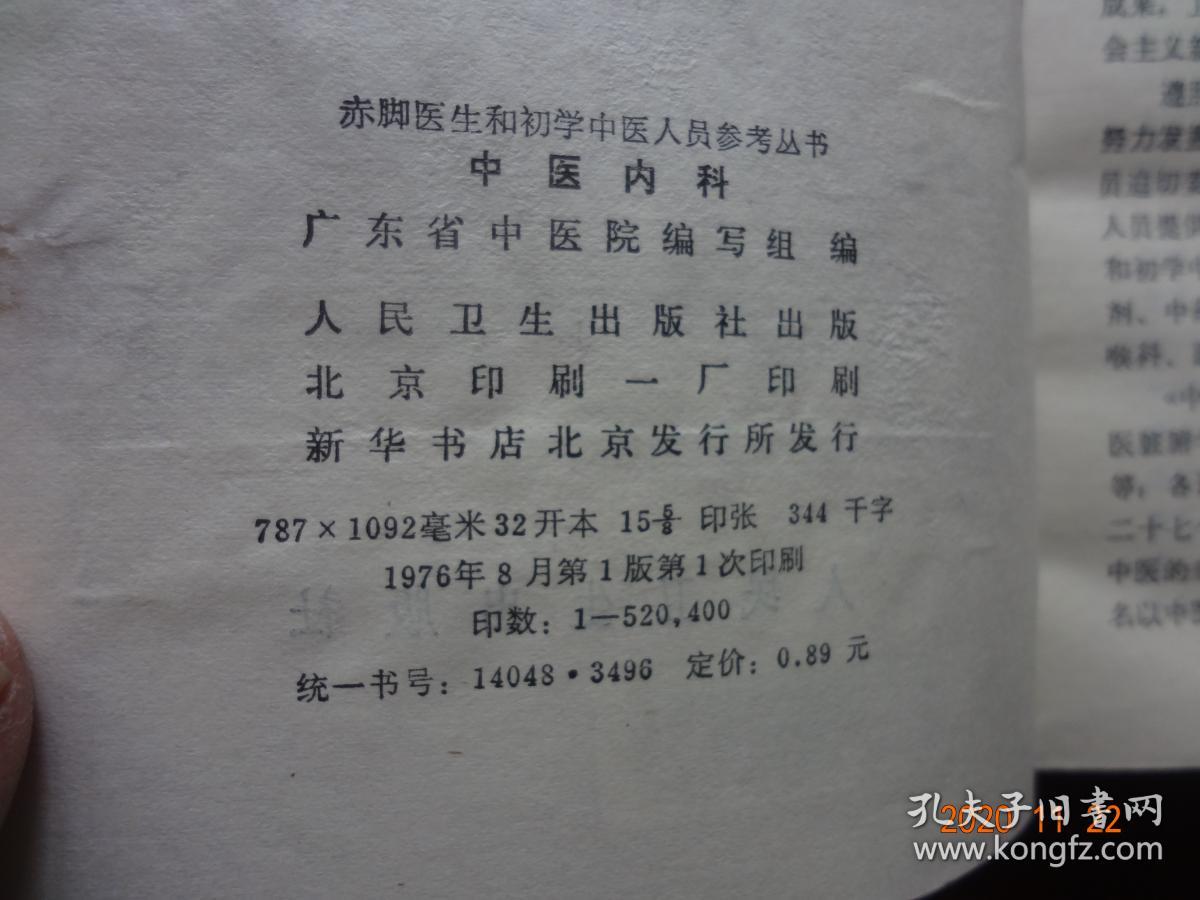 赤脚医生和初学中医人员参考丛书
中医内科
广东省中医院编写组 编
人民卫生出版社出版
北京印刷一厂印刷
新华书店北京发行所发行
787×1092毫米32开本 15⅝ 印张 344 千字
1976年8月第1版第1次印刷
印数：1—520,400
统一书号：14048·3496 定价：0.89 元
成果，
会主义
遵照
努力发
员迫切
人员提供
和初学中
剂、中
喉科、
《中
医脏腑
等；各
二十七
中医的
名以中
孔夫子旧书网
www.kongfz.com
2020 11 22